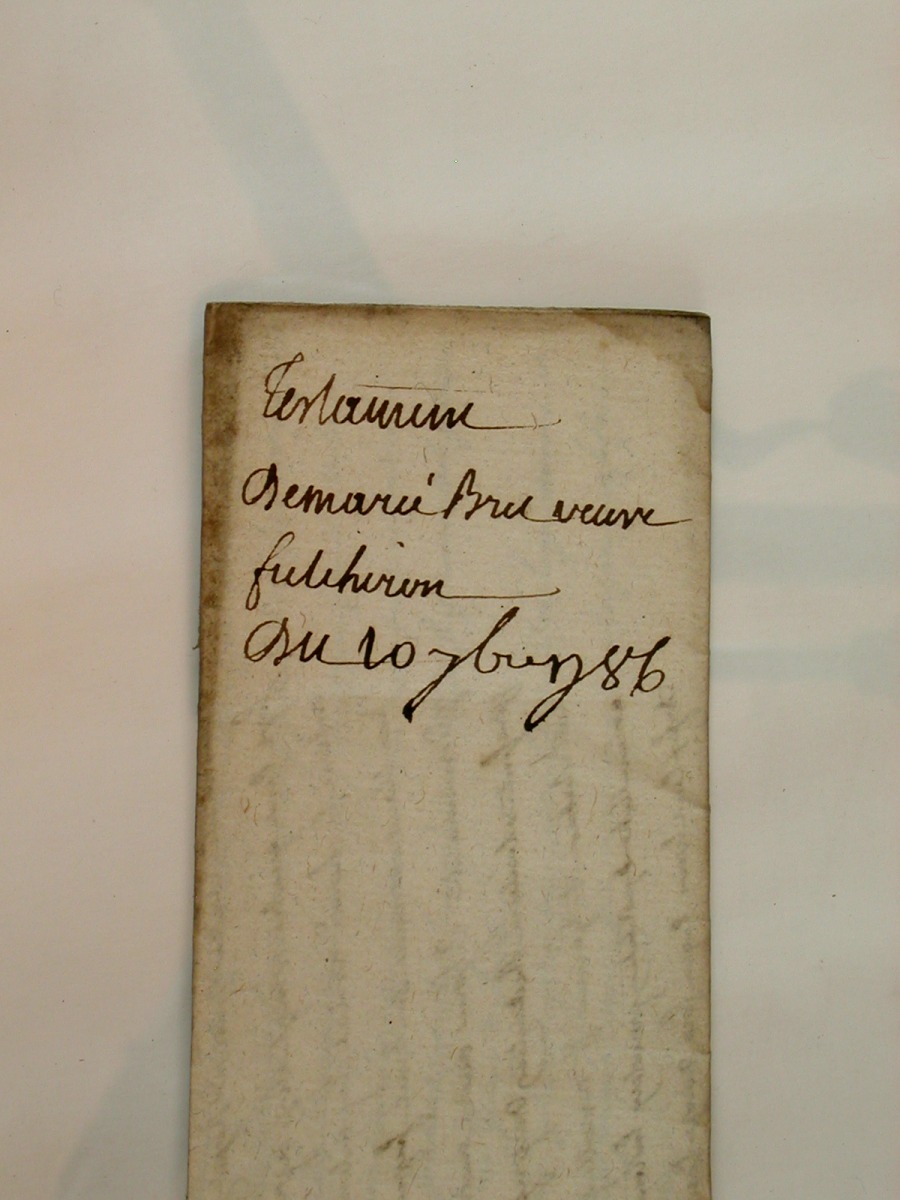 Testament
Demarie Bru veuve
fulchiron
Du 10 7bre 1786